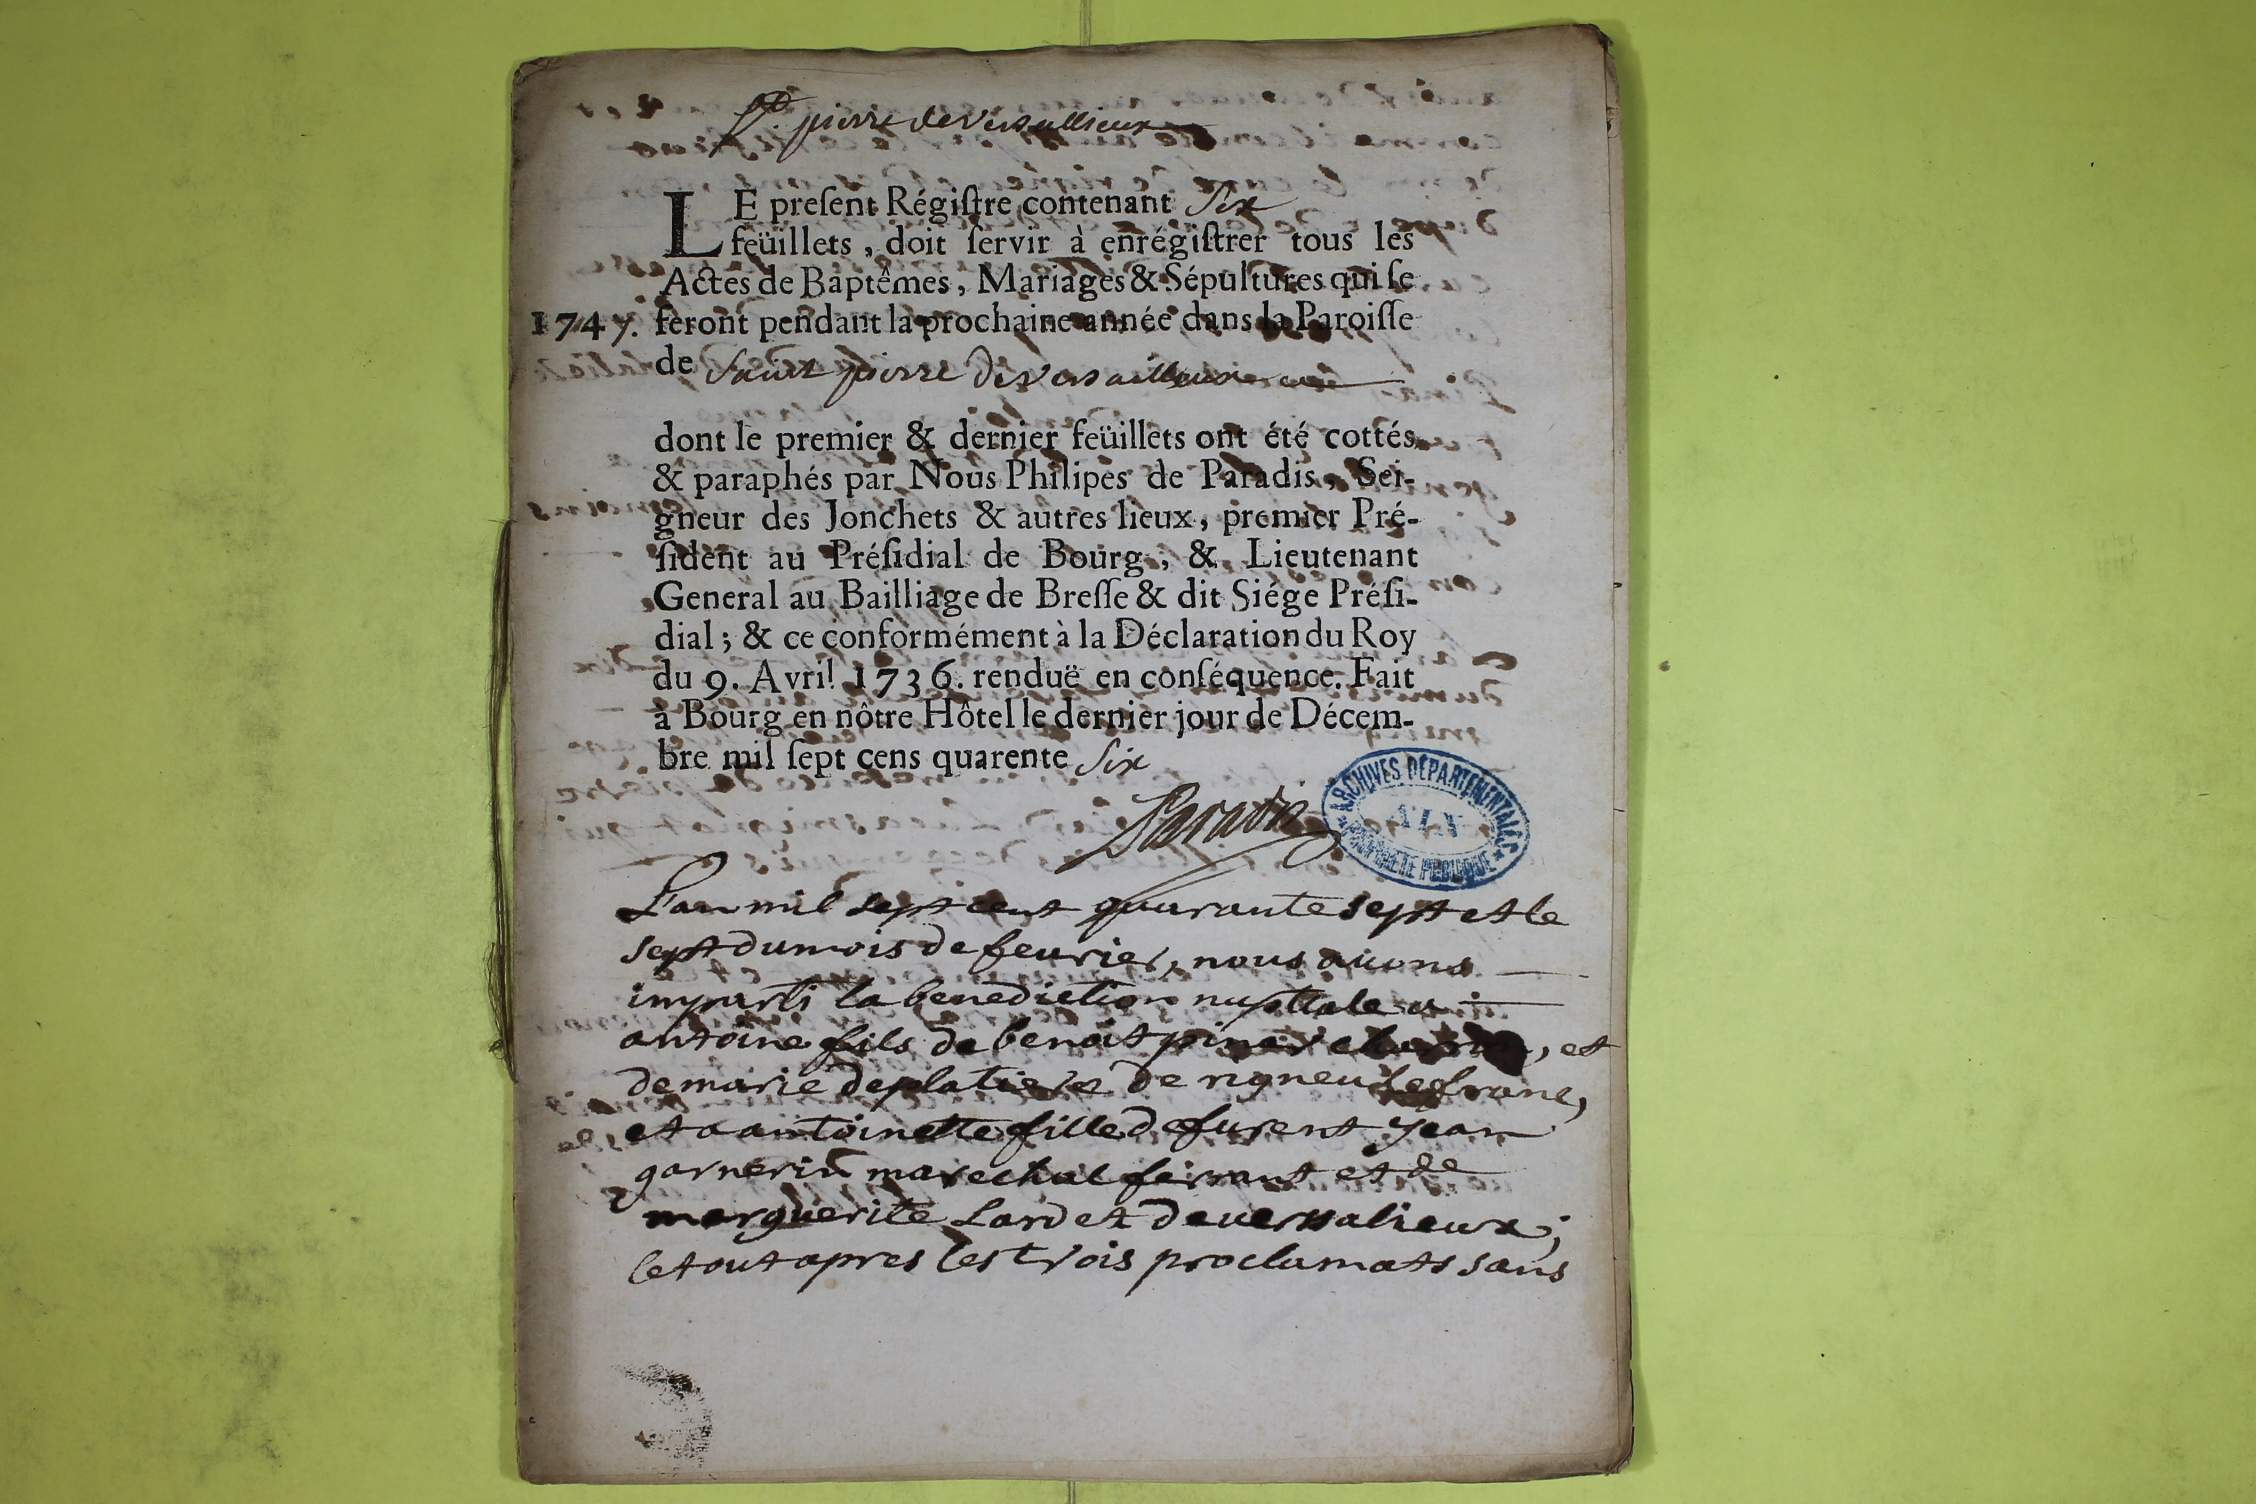 St. pierre de Versaillieux
LE preſent Régiſtre contenant Six
feüillets, doit ſervir à enrégiſtrer tous les
Actes de Baptêmes, Mariages & Sépultures qui ſe
1747. feront pendant la prochaine année dans la Paroiſſe
de Saint pierre de Versailleux
dont le premier & dernier feüillets ont été cottés
& paraphés par Nous Philipes de Paradis, Sei-
gneur des Jonchets & autres lieux, premier Pré-
ſident au Préſidial de Bourg, & Lieutenant
General au Bailliage de Breſſe & dit Siége Préſi-
dial; & ce conformément à la Déclaration du Roy
du 9. Avril 1736. renduë en conſéquence. Fait
à Bourg en nôtre Hôtel le dernier jour de Décem-
bre mil ſept cens quarente Six
Paradis
ARCHIVES DÉPARTEMENTALES
AIN
PROPRIÉTÉ PUBLIQUE
L'an mil sept cent quarante sept et le
sept du mois de feurier, nous auons
imparti la benediction nuptiale a
antoine fils de benoit piner, et
de marie deplatiere de rigneu le franc,
et a antoinette fille de furent jean
garnerin marechal ferrant et de
marguerite Lardet de uersalieux;
le tout apres les trois proclamats sans